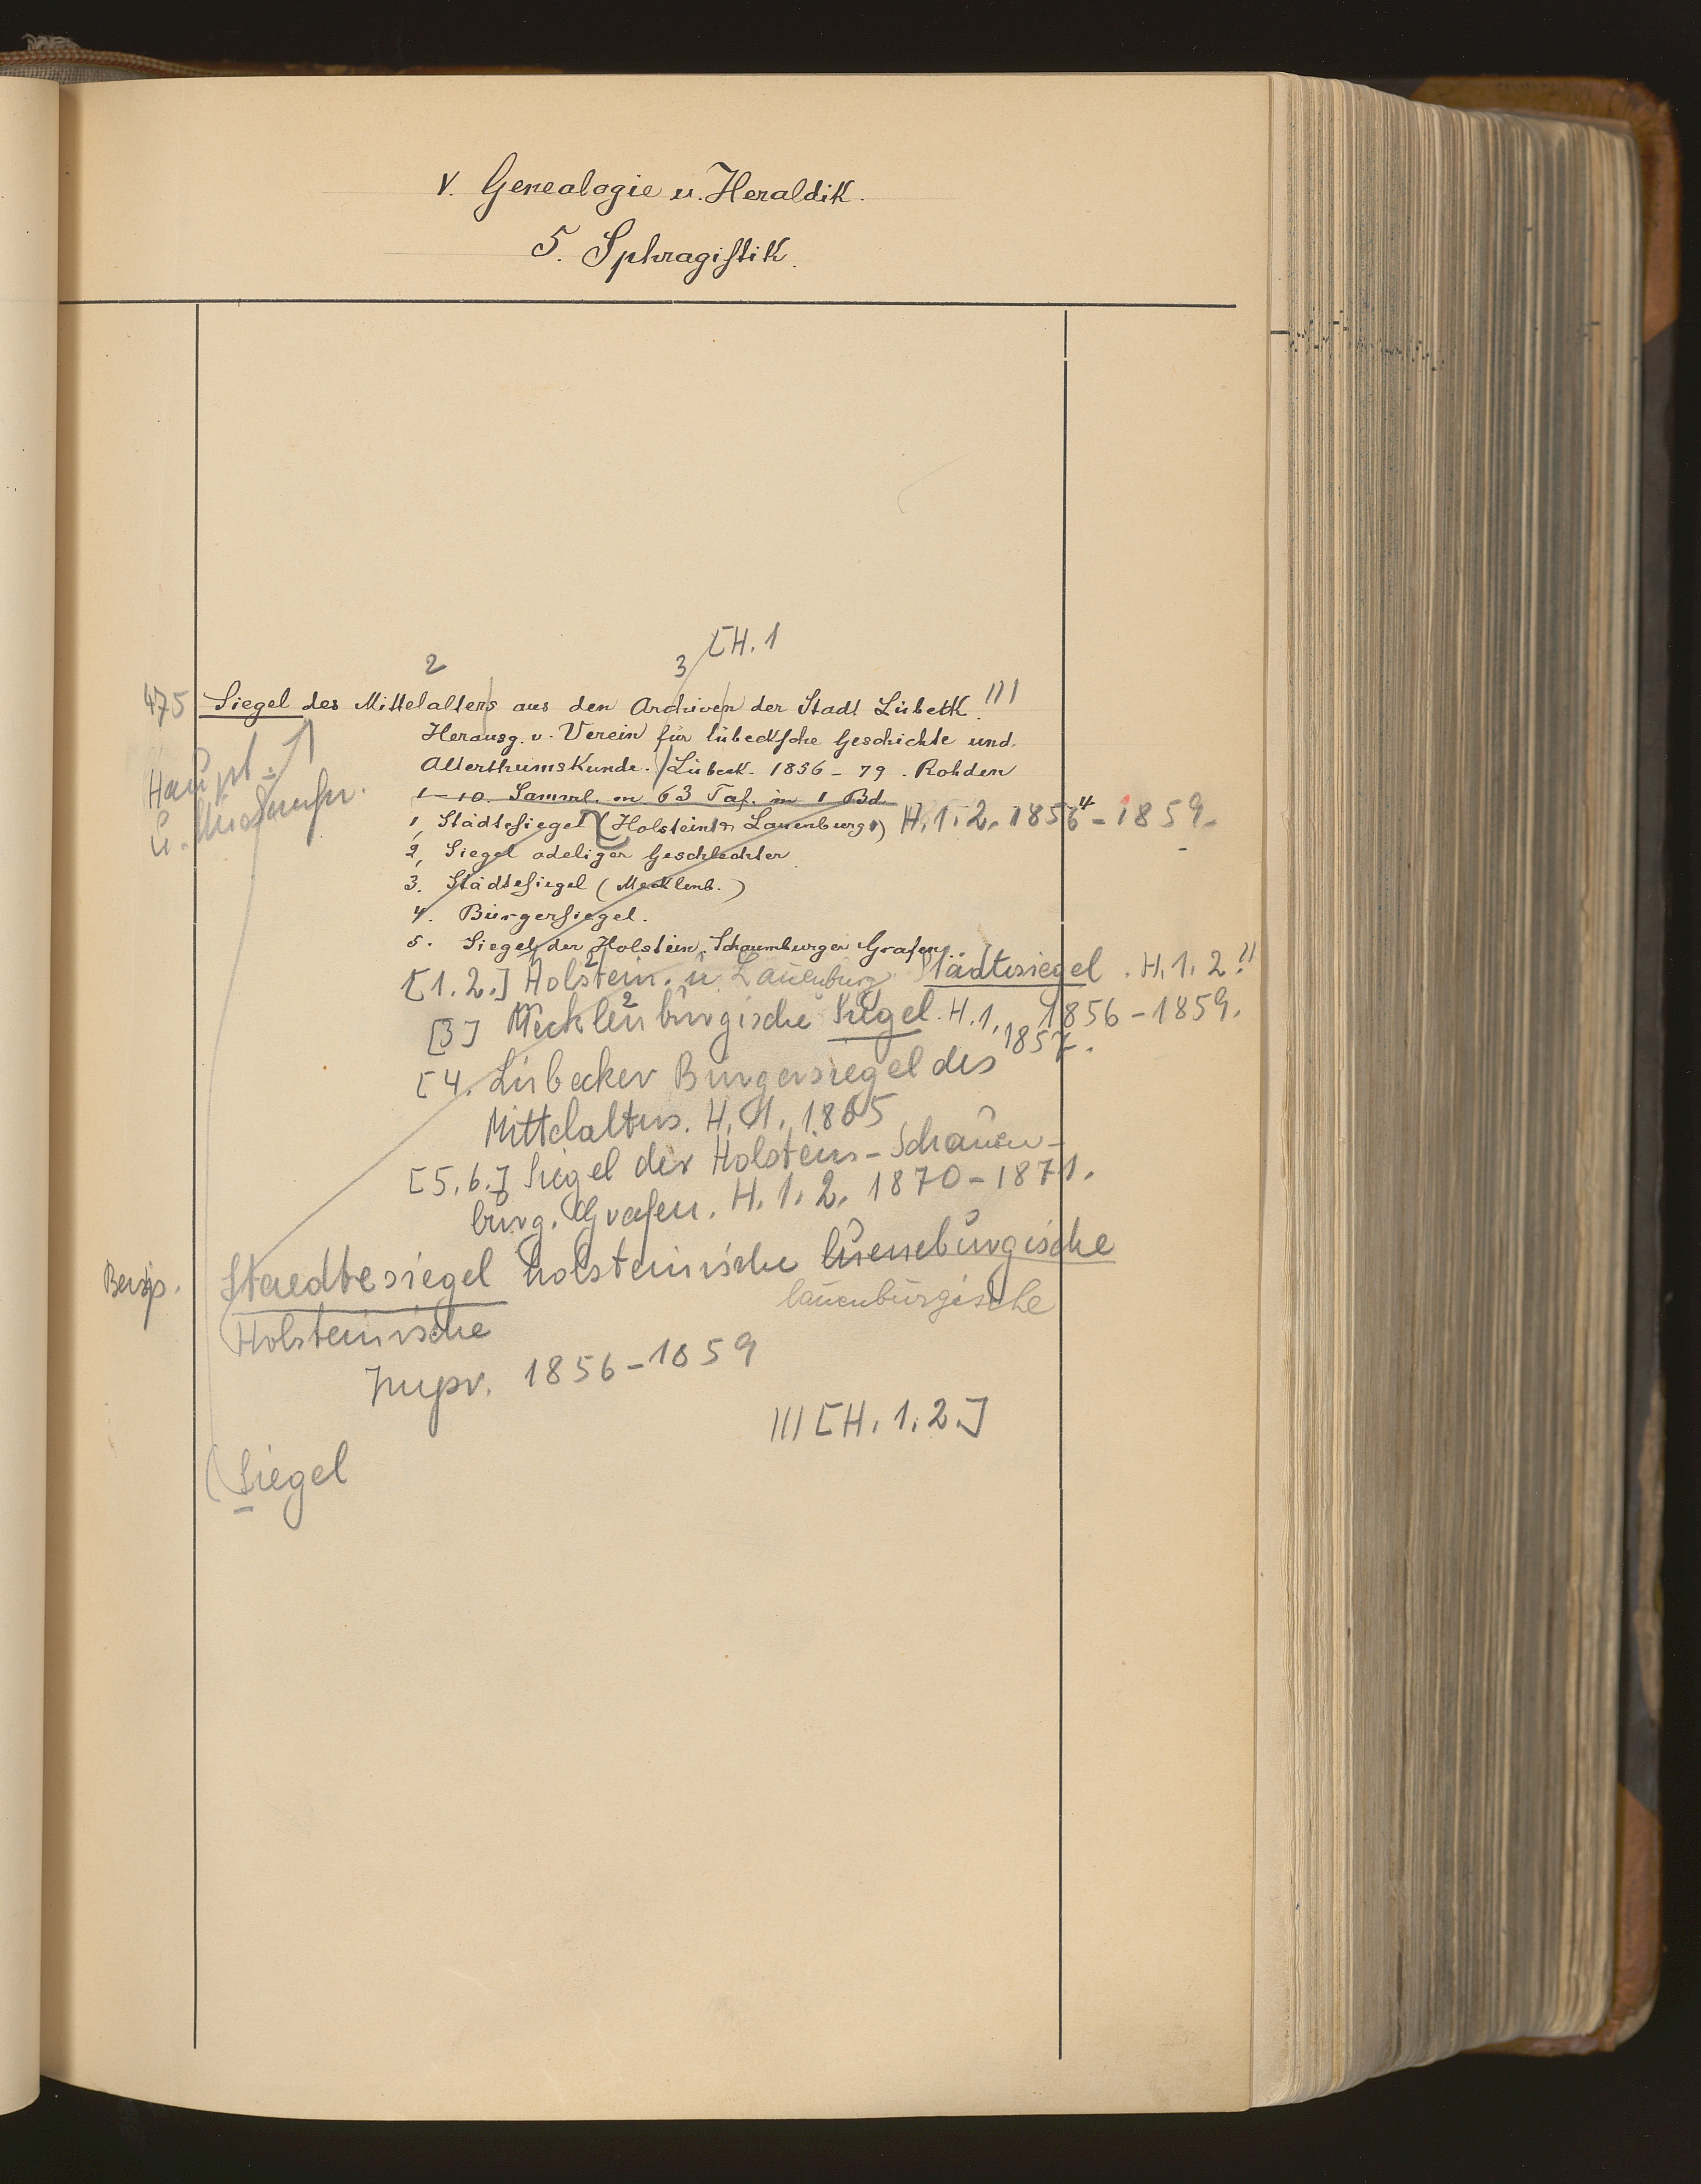 V. Genealogie u. Heraldik.
5. Sphragistik.
[H. 1
2 3
475 Siegel des Mittelalters aus den Archiven der Stadt Lübeck. !!!
Herausg. v. Verein für lübecksche Geschichte und
Alterthumskunde. Lübeck. 1856-79. Rohden
1-10. Samml. m 63 Taf. in 1 Bd.
1, Städtesiegel (Holsteins u. Lauenburgs) H. 1. 2. 1856-1859.
2, Siegel adeliger Geschlechter
3. Städtesiegel (Mecklenb.)
4. Bürgersiegel.
5. Siegel der Holstein. Schaumburger Grafen
Haupt-
u.
[1. 2.] Holstein. u. Lauenburg Städtesiegel. H. 1. 2. !!
1856-1859.
[3] Mecklenburgische Siegel. H. 1, 1857.
[4. Lübecker Bürgersiegel des
Mittelalters. H. 1, 1865
[5. 6.] Siegel der Holstein-Schauen-
burg. Grafen. H. 1. 2. 1870-1871.
Staedtesiegel holsteinische lueneburgische
lauenburgische
Holsteinische
1856-1859
III [H. 1. 2.]
(Siegel